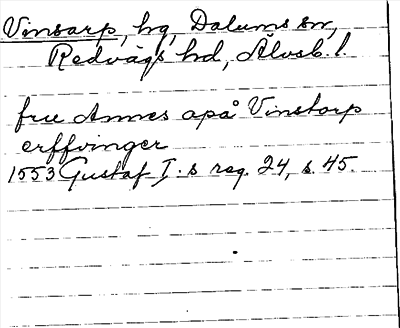 Vinsarp, hg, Dalums sn,
Redvägs hd, Älvsb. l.
frue Annes apå Vinstorp
erffvinger
1553 Gustaf I:s reg. 24, s. 45.